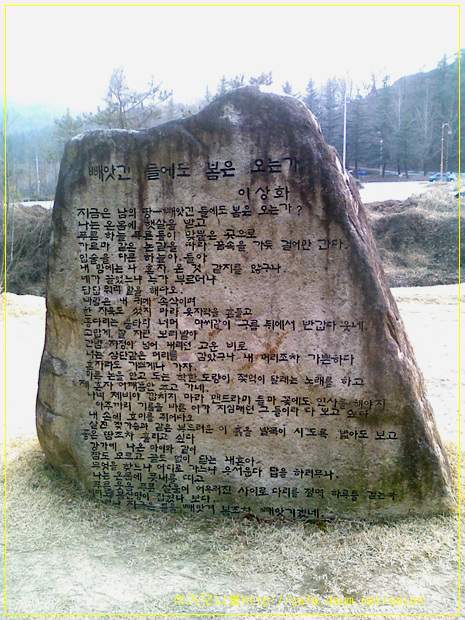 빼앗긴 들에도 봄은 오는가
이상화
지금은 남의 땅ㅡ빼앗긴 들에도 봄은 오는가?
나는 온몸에 햇살을 받고
푸른 하늘 푸른 들이 맞붙은 곳으로
가르마 같은 논길을 따라 꿈속을 가듯 걸어만 간다.
입술을 다문 하늘아 들아
내 맘에는 나 혼자 온 것 같지를 않구나.
네가 끌었느냐 누가 부르더냐
답답워라 말을 해다오.
바람은 내 귀에 속삭이며
한 자욱도 섰지 마라 옷자락을 흔들고
종다리는 울타리 너머 아씨같이 구름 뒤에서 반갑다 웃네.
고맙게 잘 자란 보리밭아
간밤 자정이 넘어 내리던 고운 비로
너는 삼단같은 머리를 감았구나 내 머리조차 가쁜하다
혼자라도 가쁘게나 가자.
마른 논을 안고 도는 착한 도랑이 젖먹이 달래는 노래를 하고
제 혼자 어깨춤만 추고 가네.
나비 제비야 깝치지 마라 맨드라미 들마꽃에도 인사를 해야지
아주까리 기름을 바른 이가 지심매던 그 들이라 다 보고 싶다
내 손에 호미를 쥐어다오
살찐 젖가슴과 같은 부드러운 이 흙을 발목이 시도록 밟아도 보고
좋은 땀조차 흘리고 싶다
강가에 나온 아이와 같이
짬도 모르고 끝도 없이 닫는 내 혼아.
무엇을 찾느냐 어디로 가느냐 웃어웁다 답을 하려무나.
나는 온몸에 풋내를 띠고
푸른 웃음 푸른 설움이 어우러진 사이로 다리를 절며 하루를 걷는다
빼앗겨 봄조차 빼앗기겠네.